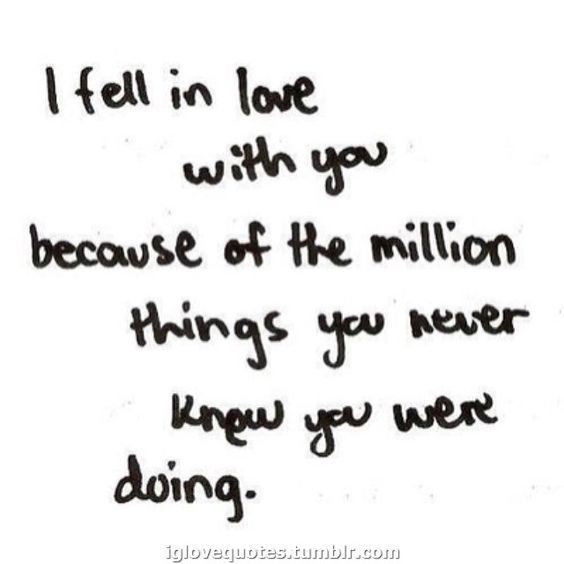 I fell in love
with you
because of the million
things you never
knew you were
doing.
iglovequotes.tumblr.com